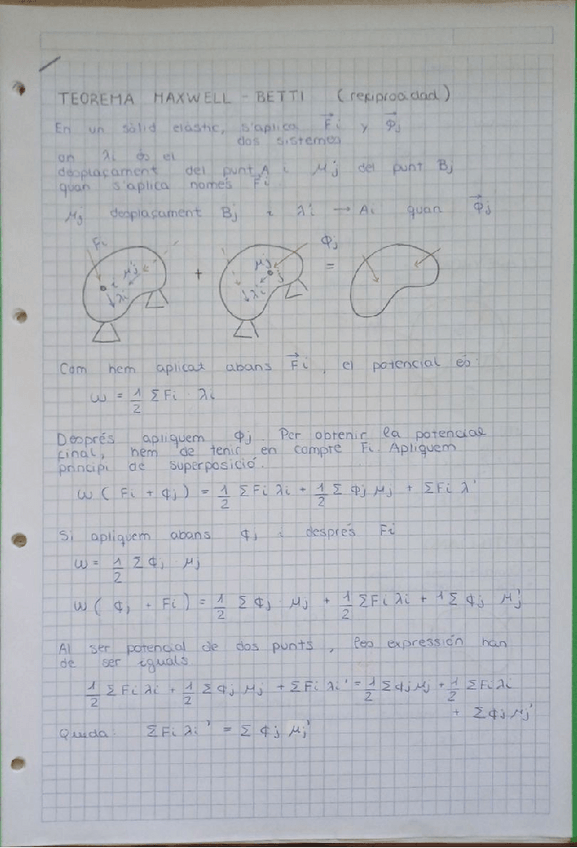 TEOREMA MAXWELL - BETTI (reciprocidad)
En un sòlid elàstic, s'aplica F⃗i y Φ⃗j
dos sistemes
on λi és el
desplaçament del punt A i μj del punt Bj
quan s'aplica només F⃗i
μj desplaçament Bj i λi → Ai quan Φ⃗j
Fi μj λi + μj λi Φj =
Com hem aplicat abans F⃗i, el potencial és
ω = 1/2 Σ Fi · λi
Després apliquem Φj. Per obtenir la potencial
final, hem de tenir en compte Fi. Apliquem
principi de superposició.
ω ( Fi + φj ) = 1/2 Σ Fi λi + 1/2 Σ φj μj + Σ Fi λ'
Si apliquem abans φj i després Fi
ω = 1/2 Σ φj μj
ω ( φj + Fi ) = 1/2 Σ φj μj + 1/2 Σ Fi λi + 1 Σ φj μj'
Al ser potencial de dos punts, les expressión han
de ser iguals
1/2 Σ Fi λi + 1/2 Σ φj μj + Σ Fi λi' = 1/2 Σ φj μj + 1/2 Σ Fi λi
+ Σ φj μj'
Queda: Σ Fi λi' = Σ φj μj'